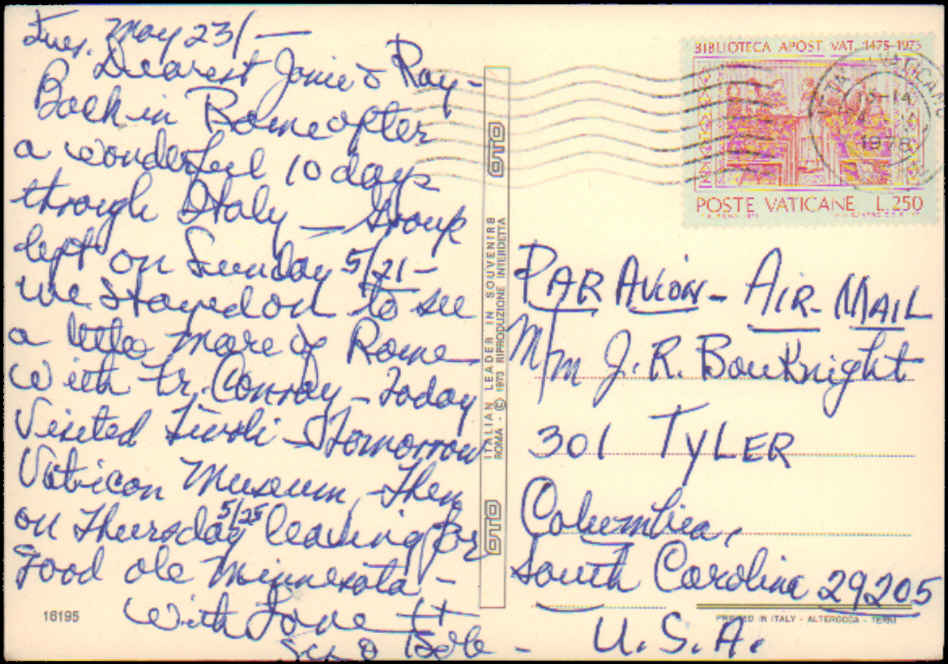 Tues. May 23/ —
Dearest Janie & Ray -
Back in Rome after
a wonderful 10 days
through Italy — Group
left on Sunday 5/21 —
we stayed on to see
a little more of Rome
with Fr. Conroy - Today
Visited Tivoli - Tomorrow
Vatican Museum, Then
on Thursday 5/25 leaving for
Good ole Minnesota -
With Love
& Bob -
16195
ITALIAN LEADER IN SOUVENIRS
ROMA - © 1973 RIPRODUZIONE INTERDETTA
OTO
OTO
BIBLIOTECA APOST. VAT. 1475-1975
POSTE VATICANE L.250
1978
PAR AVION - AIR-MAIL
M/m J. R. BouKnight
301 TYLER
Columbia,
South Carolina 29205
U.S.A.
PRINTED IN ITALY - ALTEROCCA - TERNI